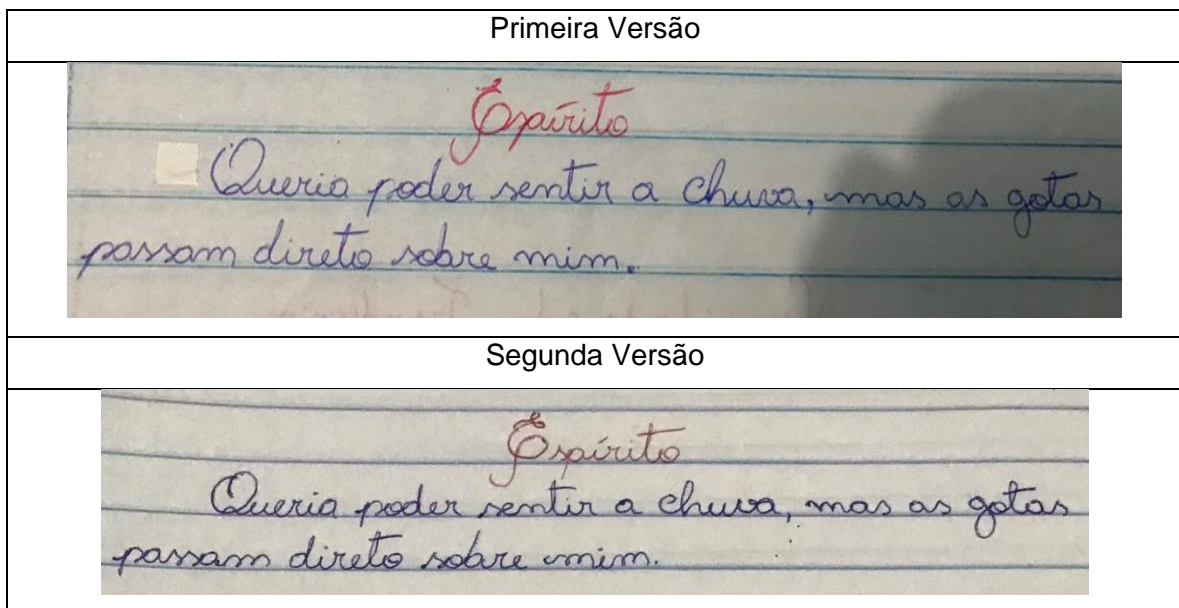 Primeira Versão
Espírito
Queria poder sentir a chuva, mas as gotas
passam direto sobre mim.
Segunda Versão
Espírito
Queria poder sentir a chuva, mas as gotas
passam direto sobre mim.